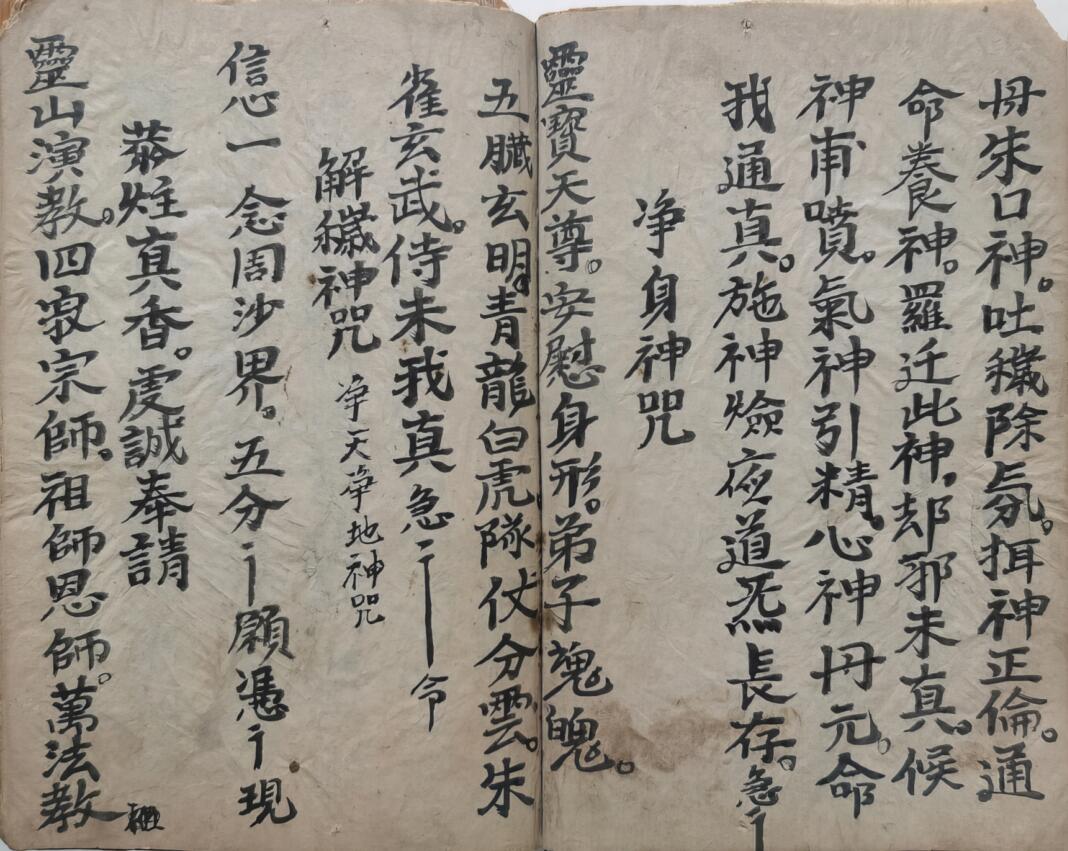 丹朱口神。吐穢除氛。挕神正倫。通
命養神。羅迁此神。却邪未真。候
神甫噴。氣神引精。心神丹元。命
我通真。施神㷿夜道炁長存。急〻
净身神咒
靈寶天尊。安慰身形。弟子塊魄。
五臟玄明。青龍白虎隊仗分雲。朱
雀玄武。侍未我真急〻令
解穢神咒 净天净地神咒
信心一念周沙界。五分〻願憑〻現
恭炷真香。虔誠奉請
靈山演教。四寂宗師。祖師恩師。萬法教